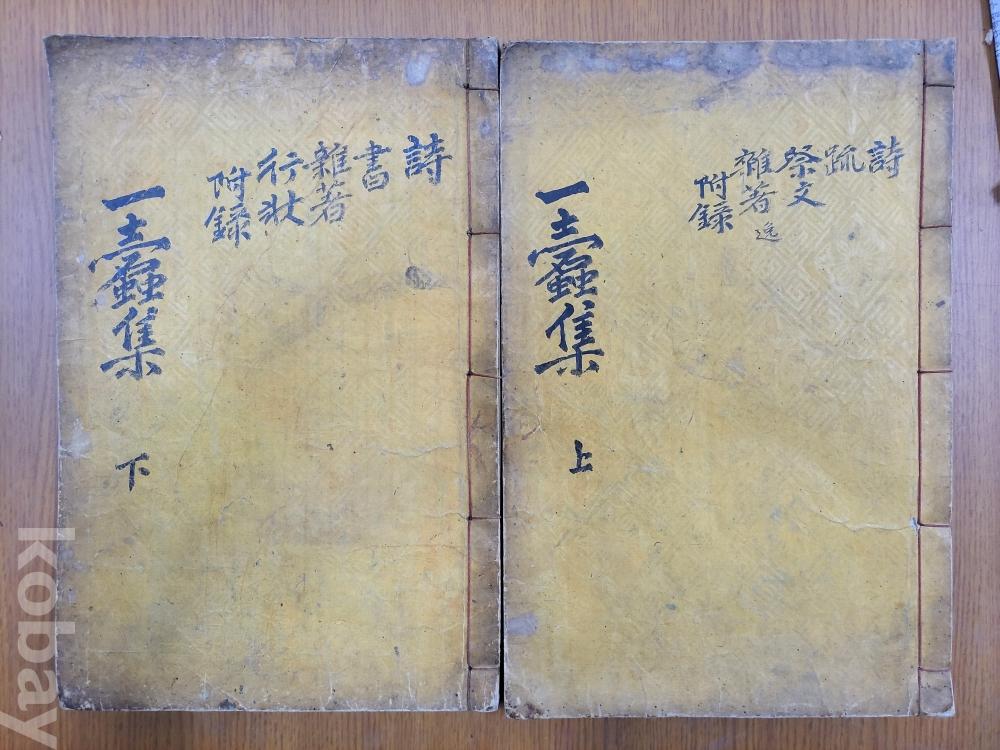 詩
疏
祭文
雜著 逸
附録
一蠹集
上
詩
書
雜著
行狀
附録
一蠹集
下
kobay